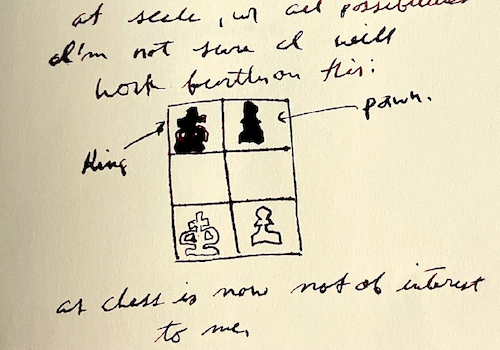 at scale, all possibilities
I'm not sure I will
work further on this:
pawn.
King
as chess is now not of interest
to me.